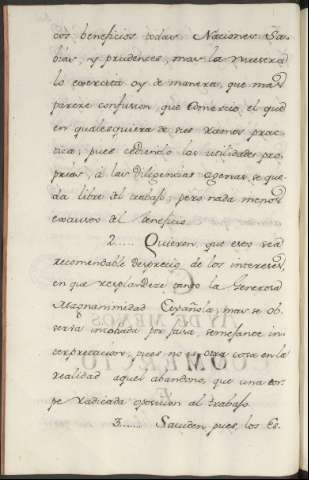 cos beneficios todas Naciones Sa-
bias, y prudentes, mas la nuestra
lo exercita oy de manera, que mas
parece confusion, que comercio, el que
en qualesquiera de sus ramos prac-
tica; pues cediendo las utilidades pro-
prias, á las diligencias agenas, se que-
da libre del trabajo, pero nada menos
exausos del beneficio.
2..... Quieren, que esto sea
recomendable desprecio de los intereses,
en que resplandece tanto la Generosa
Magnanimidad Española, mas se ob-
serva inconada por falsa, semejante in-
terpretacion, pues no es otra cosa en la
realidad aquel abandono, que una tor-
pe radicada oposicion al trabajo.
3..... Sacuden, pues, los Es-